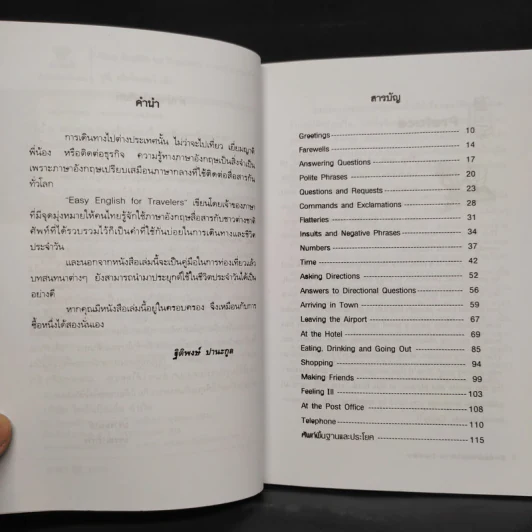 คำนำ
การเดินทางไปต่างประเทศนั้น ไม่ว่าจะไปเที่ยว เยี่ยมญาติ
พี่น้อง หรือติดต่อธุรกิจ ความรู้ทางภาษาอังกฤษเป็นสิ่งจำเป็น
เพราะภาษาอังกฤษเปรียบเสมือนภาษากลางที่ใช้ติดต่อสื่อสารกัน
ทั่วโลก
"Easy English for Travelers" เขียนโดยเจ้าของภาษา
ที่มีจุดมุ่งหมายให้คนไทยรู้จักใช้ภาษาอังกฤษสื่อสารกับชาวต่างชาติ
ศัพท์ที่ได้รวบรวมไว้ก็เป็นคำที่ใช้กันบ่อยในการเดินทางและชีวิต
ประจำวัน
และนอกจากหนังสือเล่มนี้จะเป็นคู่มือในการท่องเที่ยวแล้ว
บทสนทนาต่างๆ ยังสามารถนำมาประยุกต์ใช้ในชีวิตประจำวันได้เป็น
อย่างดี
หากคุณมีหนังสือเล่มนี้อยู่ในครอบครอง จึงเหมือนกับการ
ซื้อหนึ่งได้สองนั่นเอง
ฐิติพงษ์ ปานะกูล
สารบัญ
Greetings 10
Farewells 14
Answering Questions 17
Polite Phrases 20
Questions and Requests 23
Commands and Exclamations 28
Flatteries 31
Insults and Negative Phrases 34
Numbers 37
Time 42
Asking Directions 52
Answers to Directional Questions 56
Arriving in Town 59
Leaving the Airport 67
At the Hotel 69
Eating, Drinking and Going Out 85
Shopping 94
Making Friends 99
Feeling Ill 103
At the Post Office 108
Telephone 110
ศัพท์พื้นฐานและประโยค 115